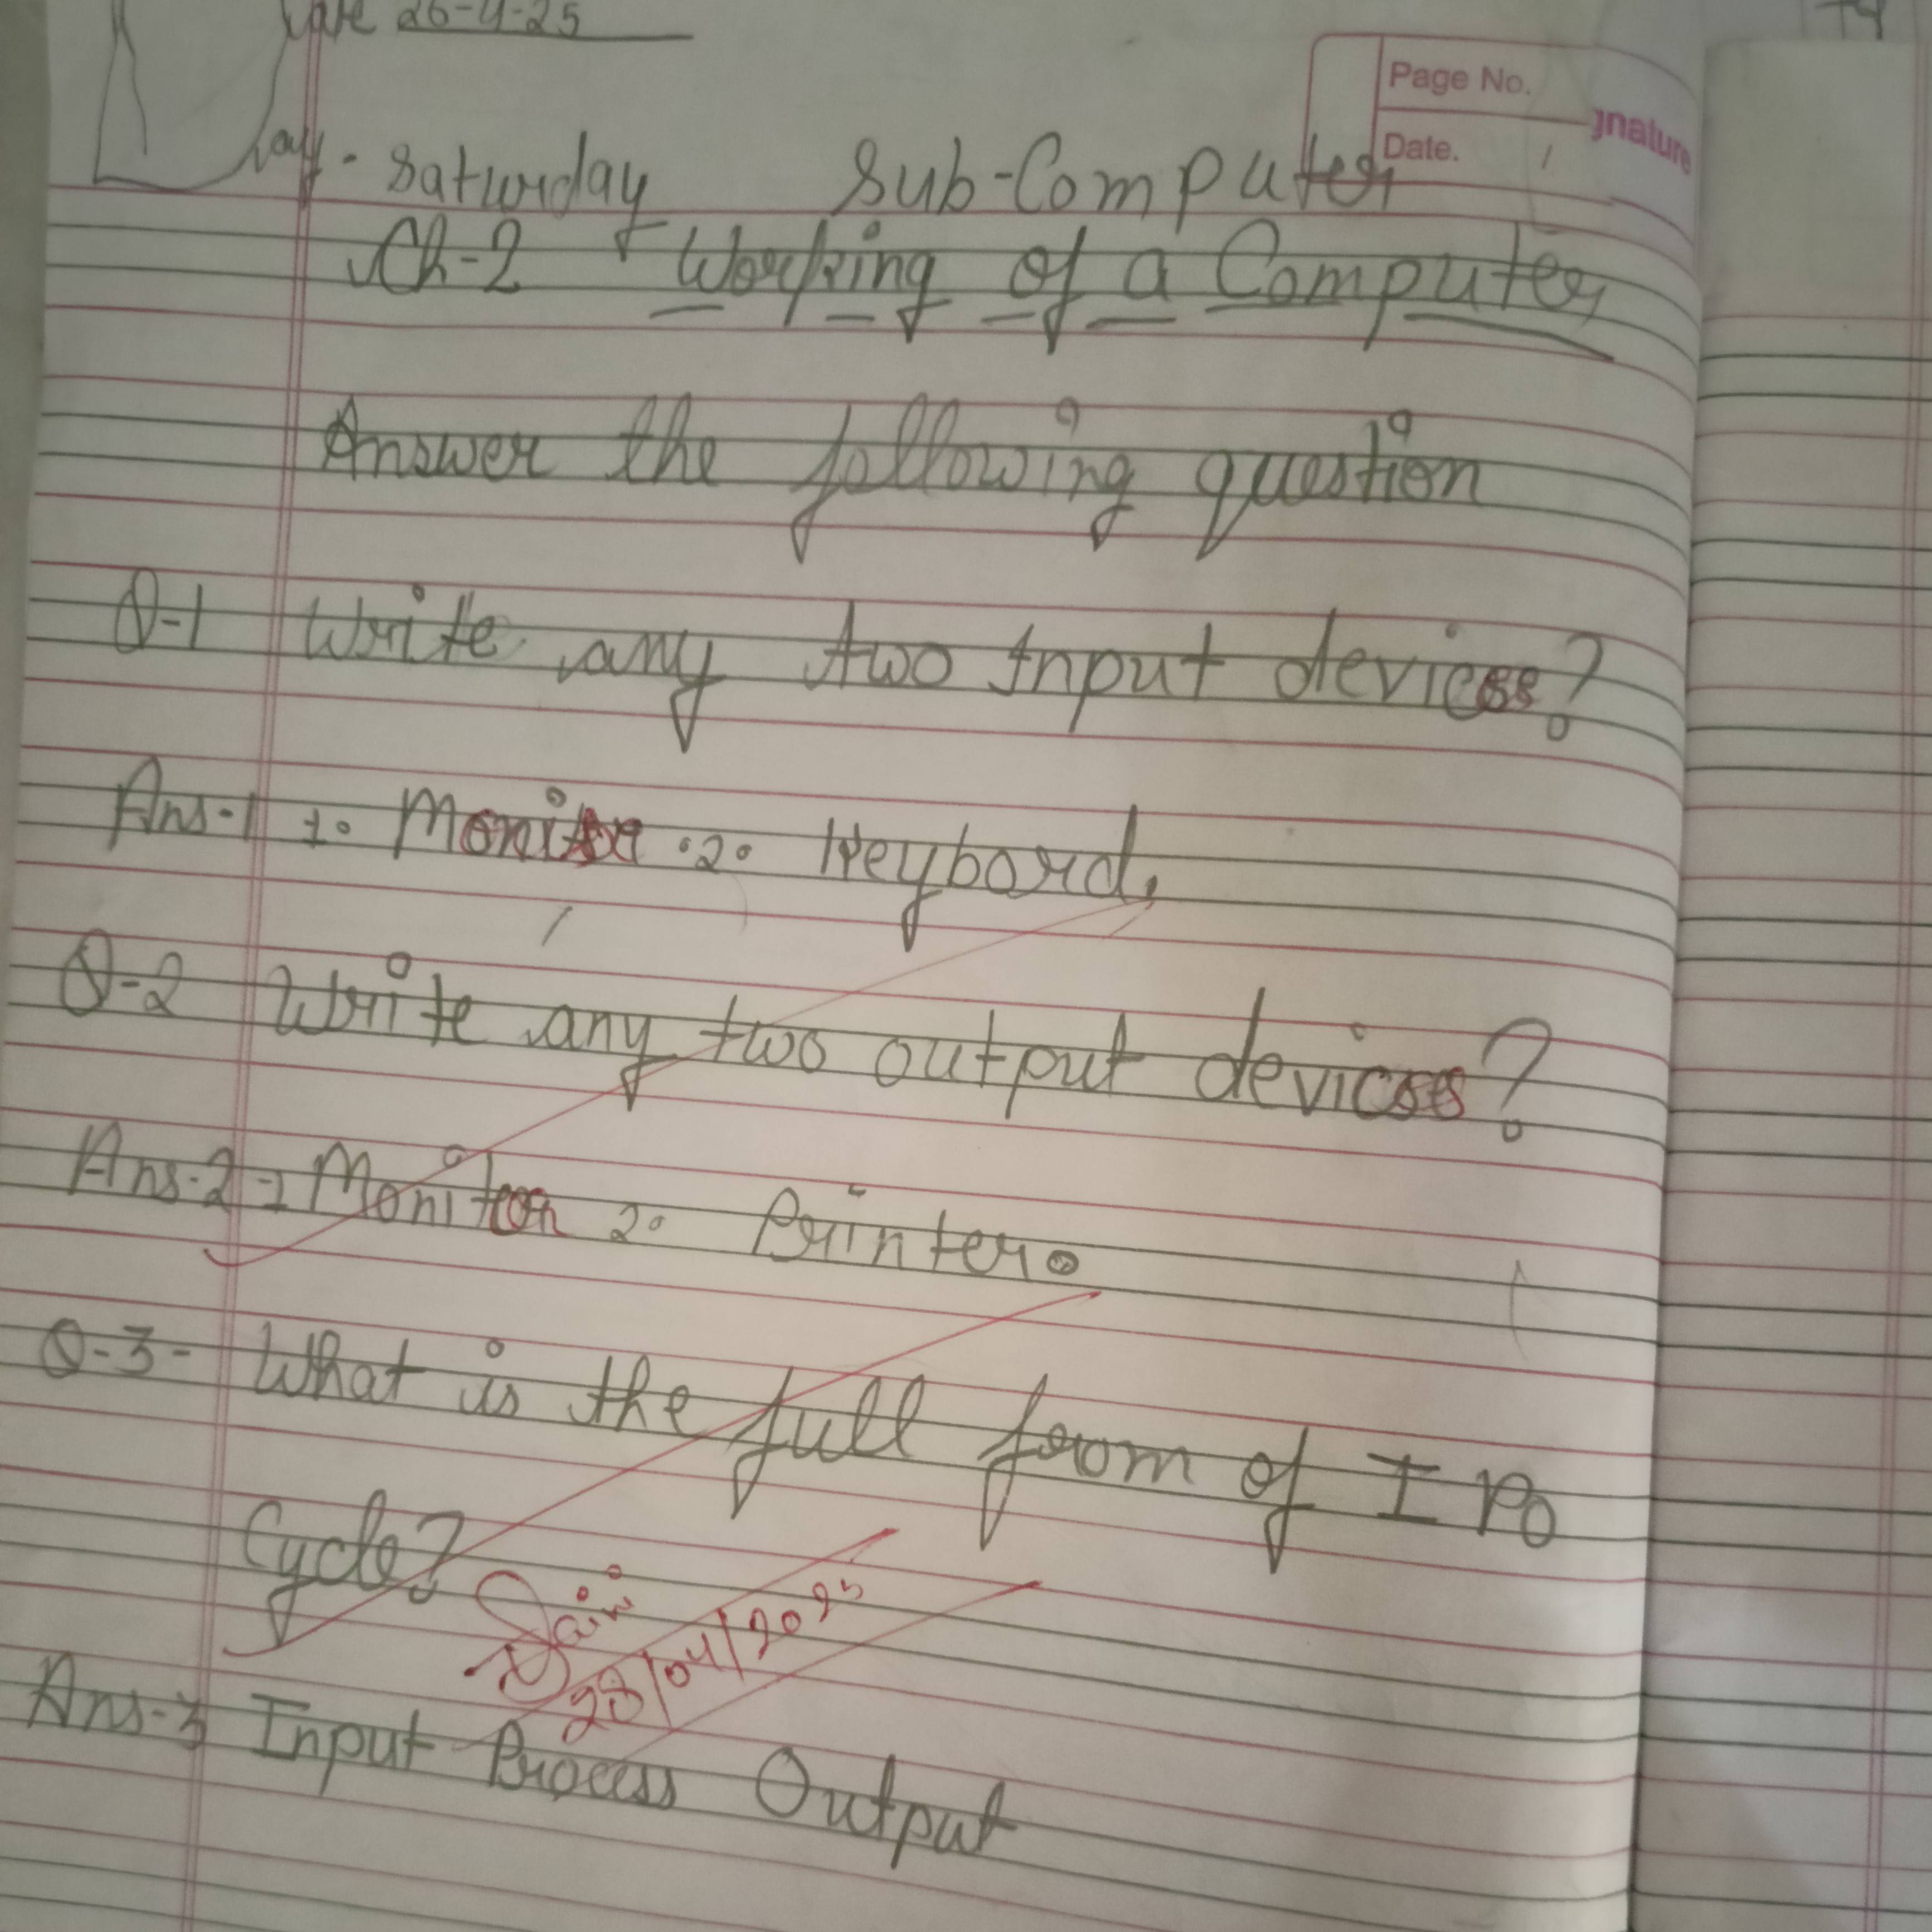 Date 26-4-25
Page No.
gnature
Date. /
Day. Saturday Sub-Computer
Ch-2 Working of a Computer
Answer the following question
Q-1 Write any two Input devices?
Ans-1 1. Monitor .2. Keybord.
Q-2 Write any two output devices?
Ans-2 - 1 Monitor 2. Printer.
Q-3- What is the full from of I PO
Cycle?
28/04/2025
Ans-3 Input Process Output